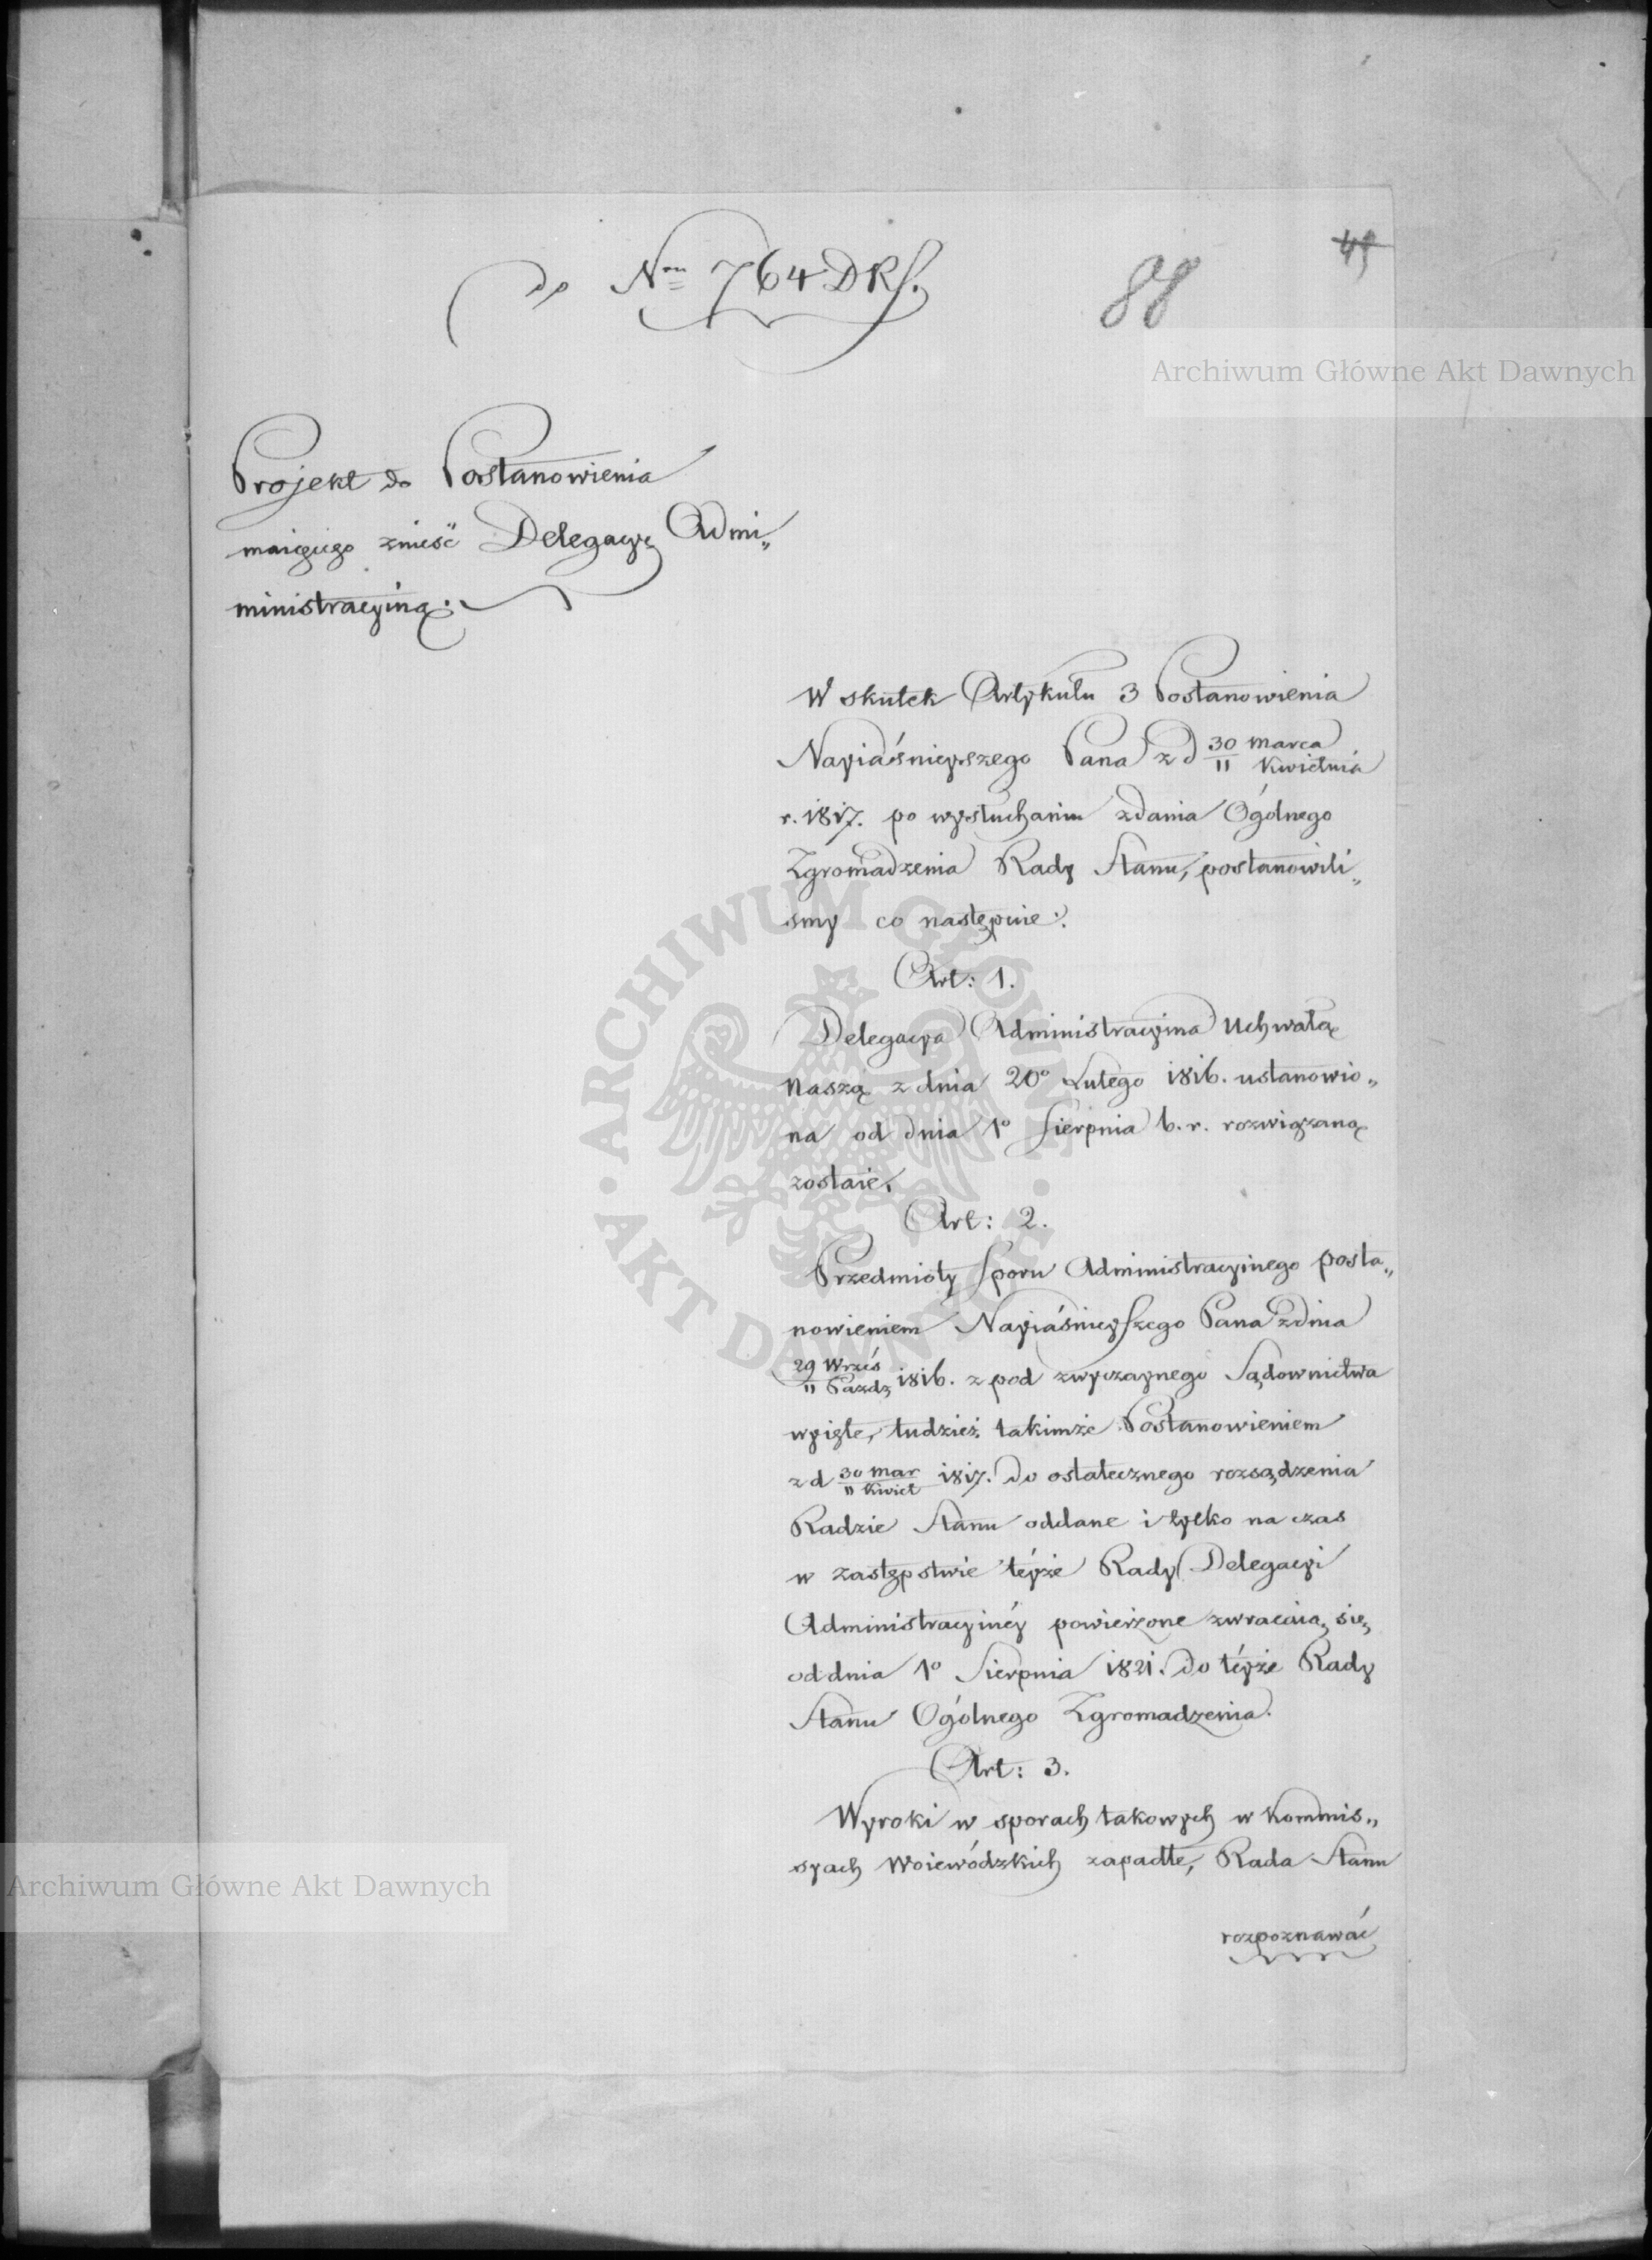 do Nro 764 DRS.
88
49
Archiwum Główne Akt Dawnych
Projekt do Postanowienia
maiącego znieść Delegacyę Admi„
ministracyiną.
W skutek Artykułu 3 Postanowienia
Nayiaśnieyszego Pana z d 30 marca / 11 Kwietnia
r. 1817. po wysłuchaniu zdania Ogólnego
Zgromadzenia Rady Stanu, postanowili„
smy co następuie:
Art: 1.
Delegacya Administracyina Uchwałą
Naszą z dnia 20º Lutego 1816. ustanowio„
na od dnia 1º Sierpnia b. r. rozwiązaną
zostaie.
Art: 2.
Przedmioty Sporu Administracyinego posta„
nowieniem Nayiaśnieyszego Pana z dnia
29 Wrześ / 11 Pazdz 1816. z pod zwyczaynego Sądownictwa
wyięte, tudzież takimże Postanowieniem
z d 30 Mar / 11 Kwiet 1817. do ostatecznego rozsądzenia
Radzie Stanu oddane i tylko na czas
w zastępstwie téyże Rady Delegacyi
Administracyinéy powierzone zwracaią się
od dnia 1º Sierpnia 1821. do téyże Rady
Stanu Ogólnego Zgromadzenia.
Art: 3.
Wyroki w sporach takowych w Kommis„
syach Woiewódzkich zapadłe, Rada Stanu
rozpoznawać
Archiwum Główne Akt Dawnych
ARCHIWUM GŁÓWNE
AKT DAWNYCH